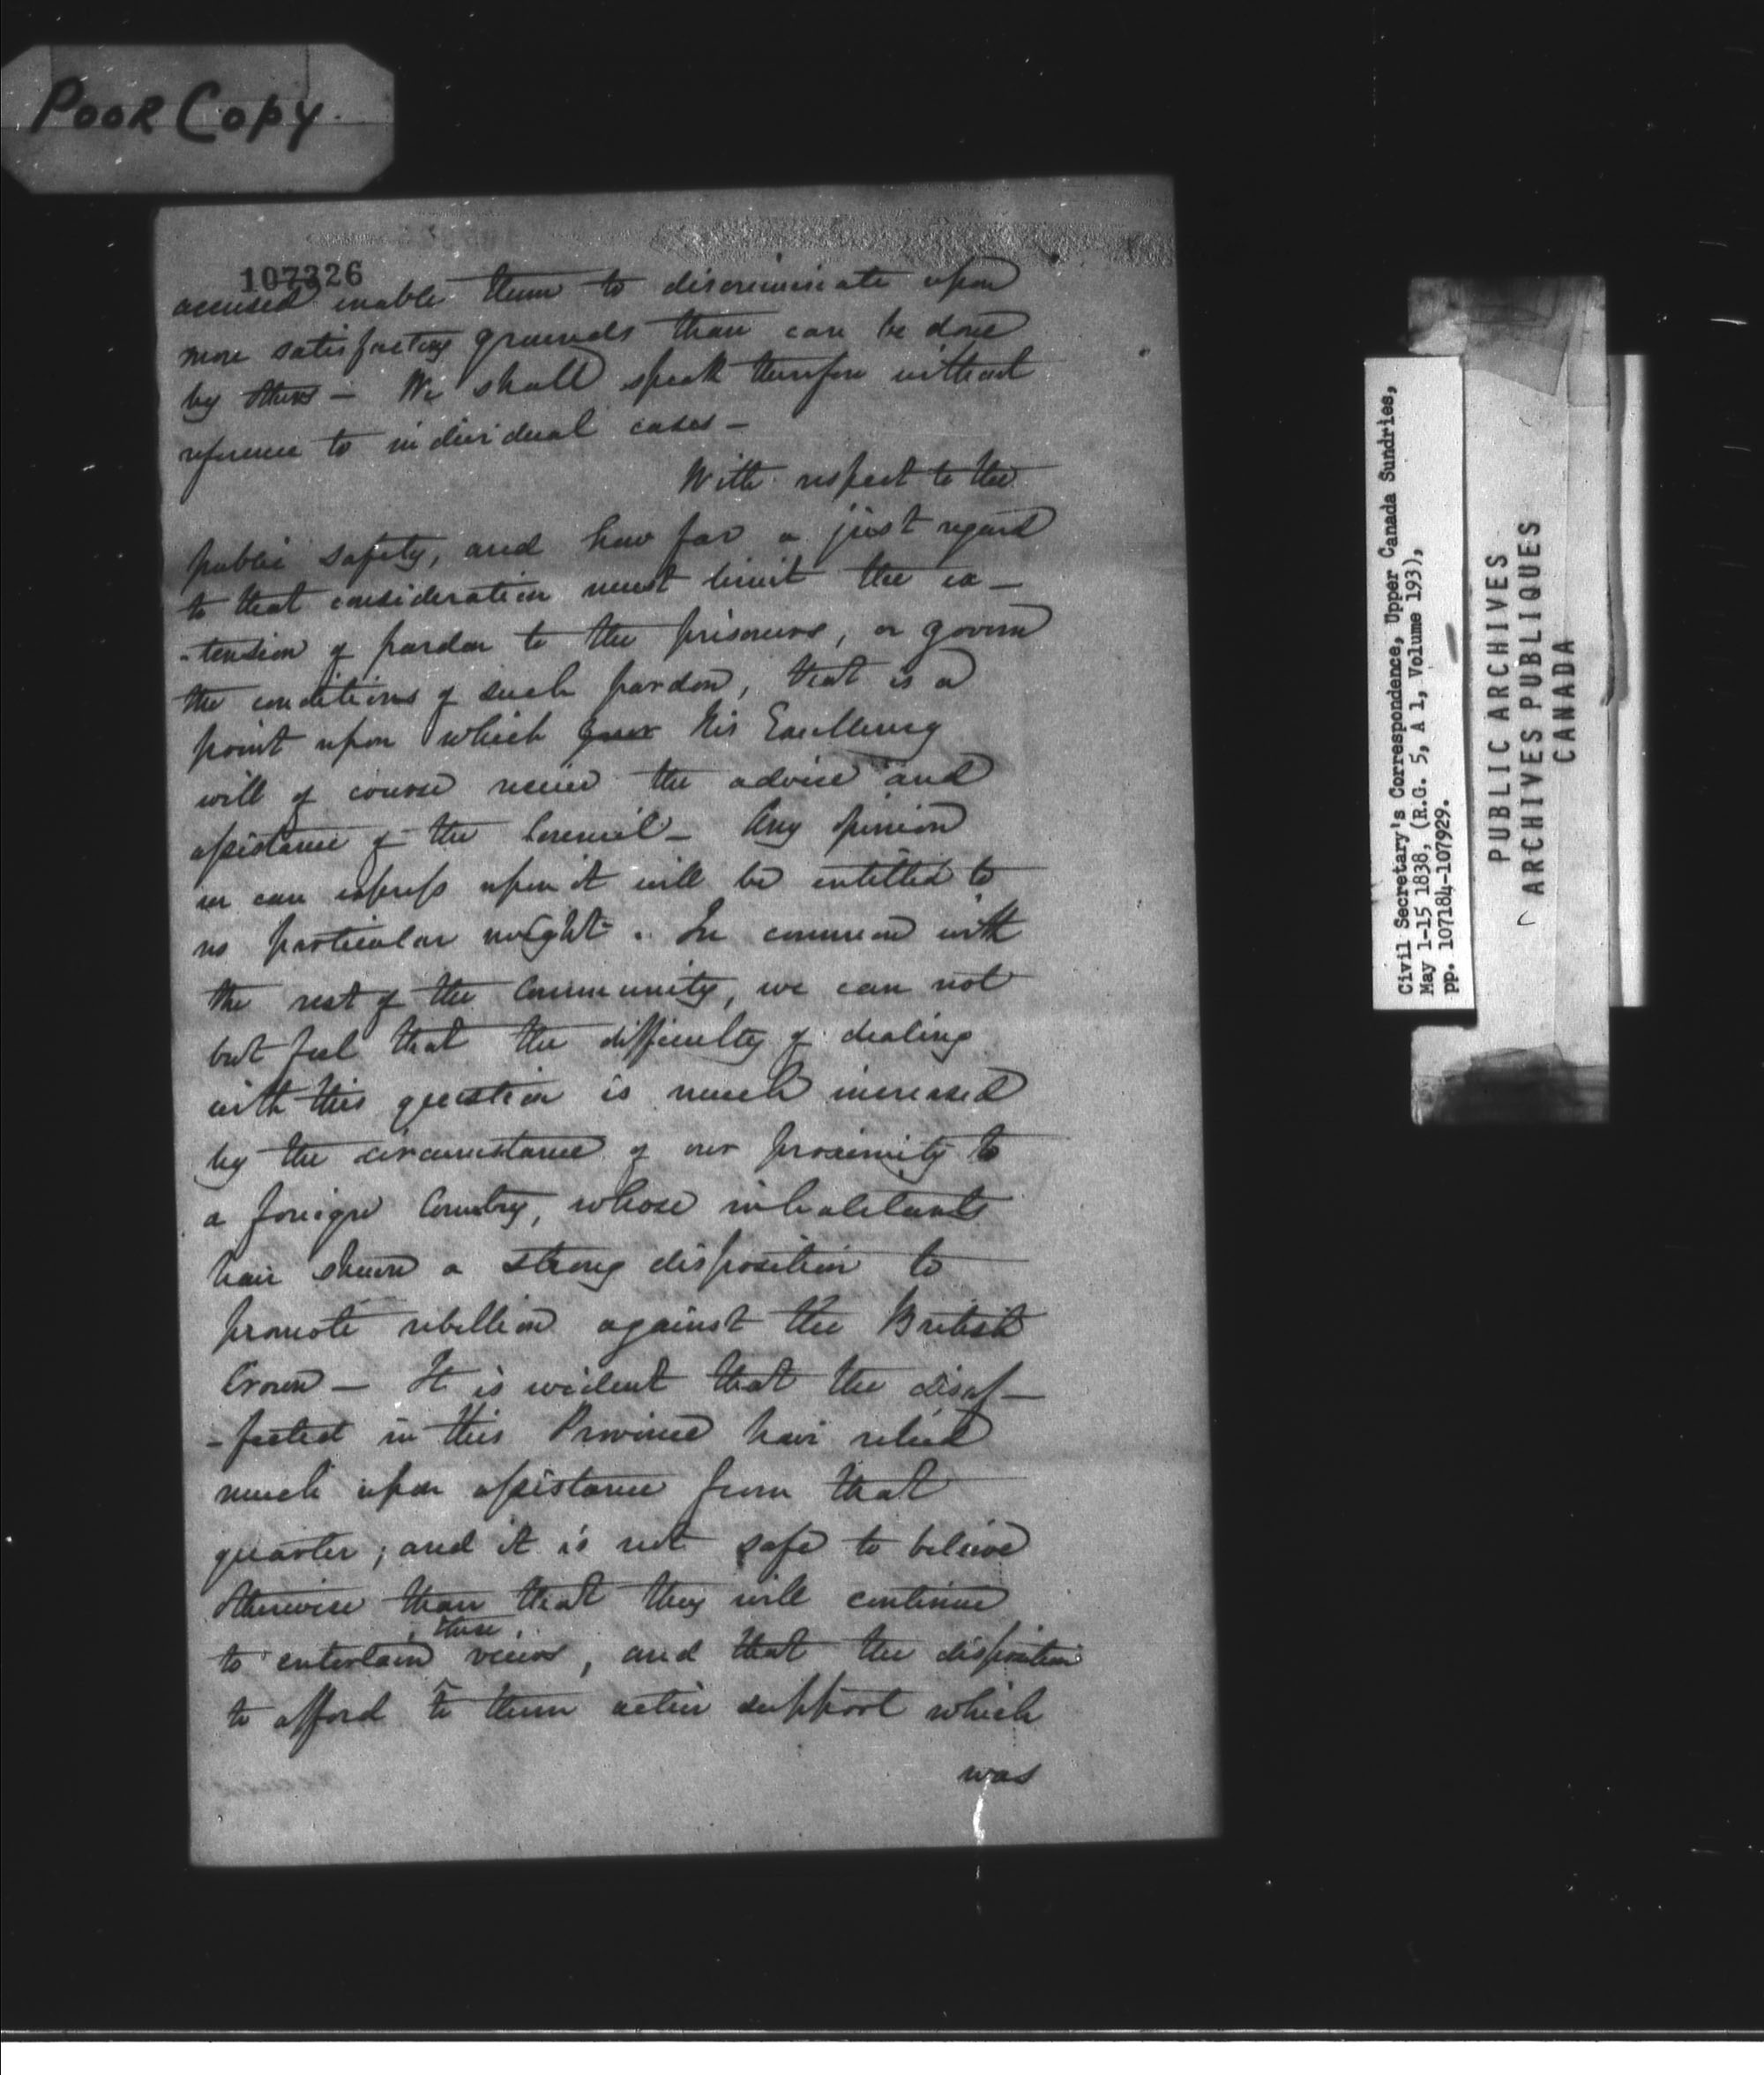 POOR COPY.
107326
accused enable them to discriminate upon
more satisfactory grounds than can be done
by others — We shall speak therefore without
reference to individual cases —
With respect to the
public safety, and how far a just regard
to that consideration must limit the ex—
-tension of pardon to the prisoners, or govern
the conditions of such pardon, that is a
point upon which His Excellency
will of course receive the advice and
assistance of the Council — Any opinion
we can express upon it will be entitled to
no particular weight. In common with
the rest of the Community, we can not
but feel that the difficulty of dealing
with this question is much increased
by the circumstance of our proximity to
a foreign Country, whose inhabitants
have shewn a strong disposition to
promote rebellion against the British
Crown — It is evident that the disaf—
-fected in this Province have relied
much upon assistance from that
quarter; and it is not safe to believe
otherwise than that they will continue
to entertain these views, and that the disposition
to afford to them active support which
was
Civil Secretary's Correspondence, Upper Canada Sundries,
May 1-15 1838, (R.G. 5, A 1, Volume 193),
pp. 107184-107929.
PUBLIC ARCHIVES
ARCHIVES PUBLIQUES
CANADA